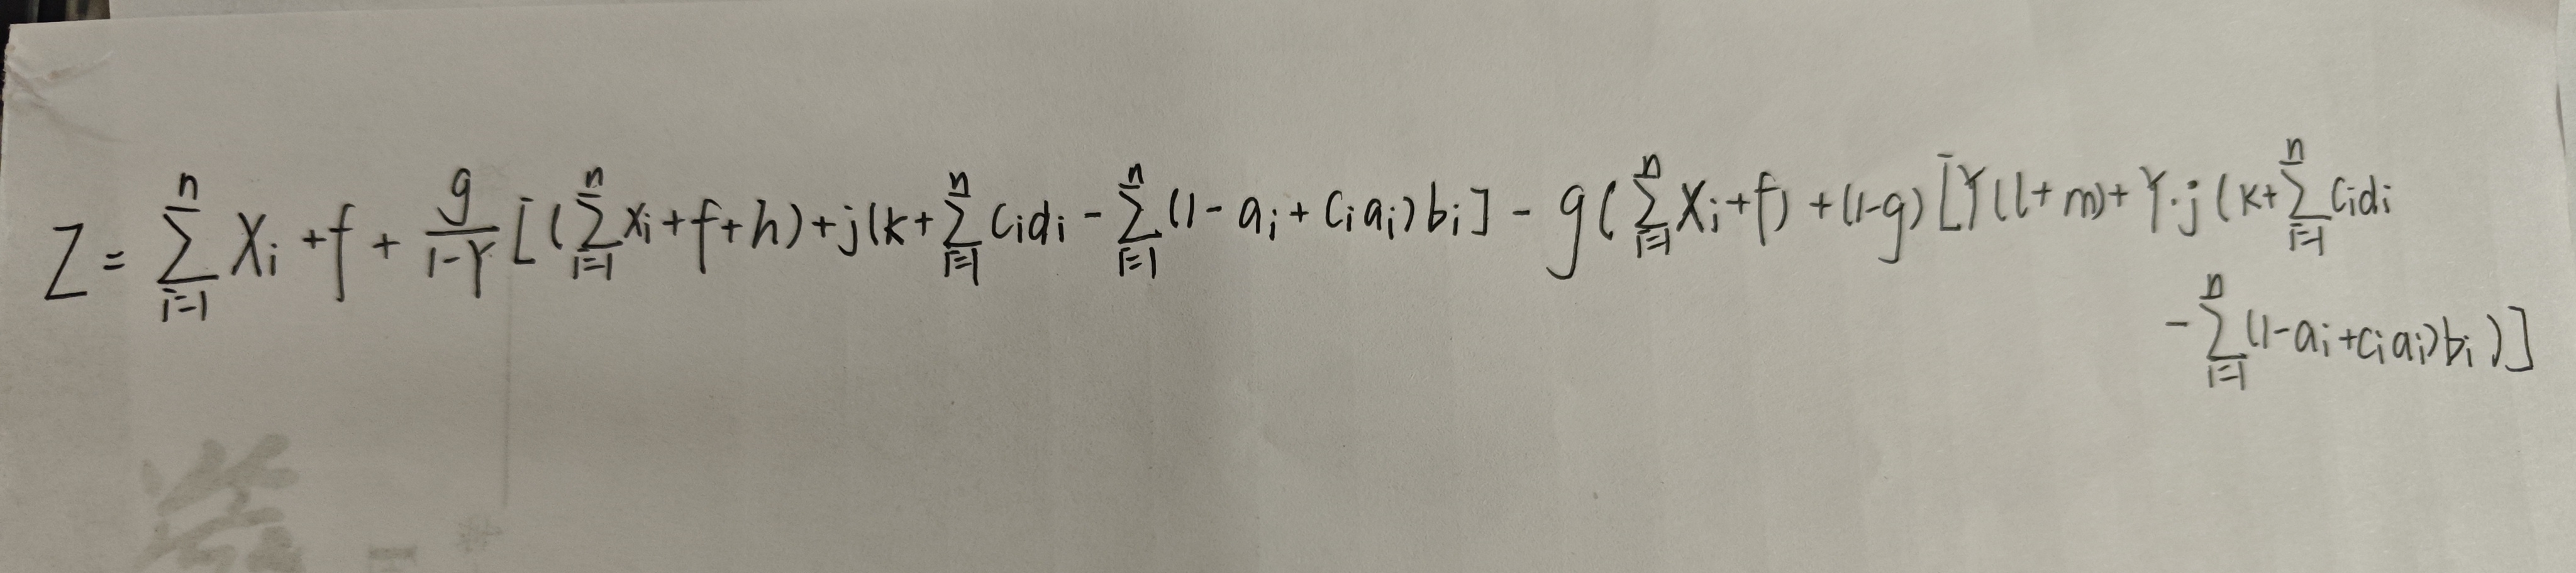 Z = \sum_{i=1}^{n} X_i + f + \frac{g}{1-Y} [(\sum_{i=1}^{n} x_i + f + h) + j(k + \sum_{i=1}^{n} c_i d_i - \sum_{i=1}^{n} (1 - a_i + c_i a_i) b_i] - g(\sum_{i=1}^{n} X_i + f) + (1-g) [Y(l+m) + Y \cdot j(k + \sum_{i=1}^{n} c_i d_i
- \sum_{i=1}^{n} (1 - a_i + c_i a_i) b_i)]